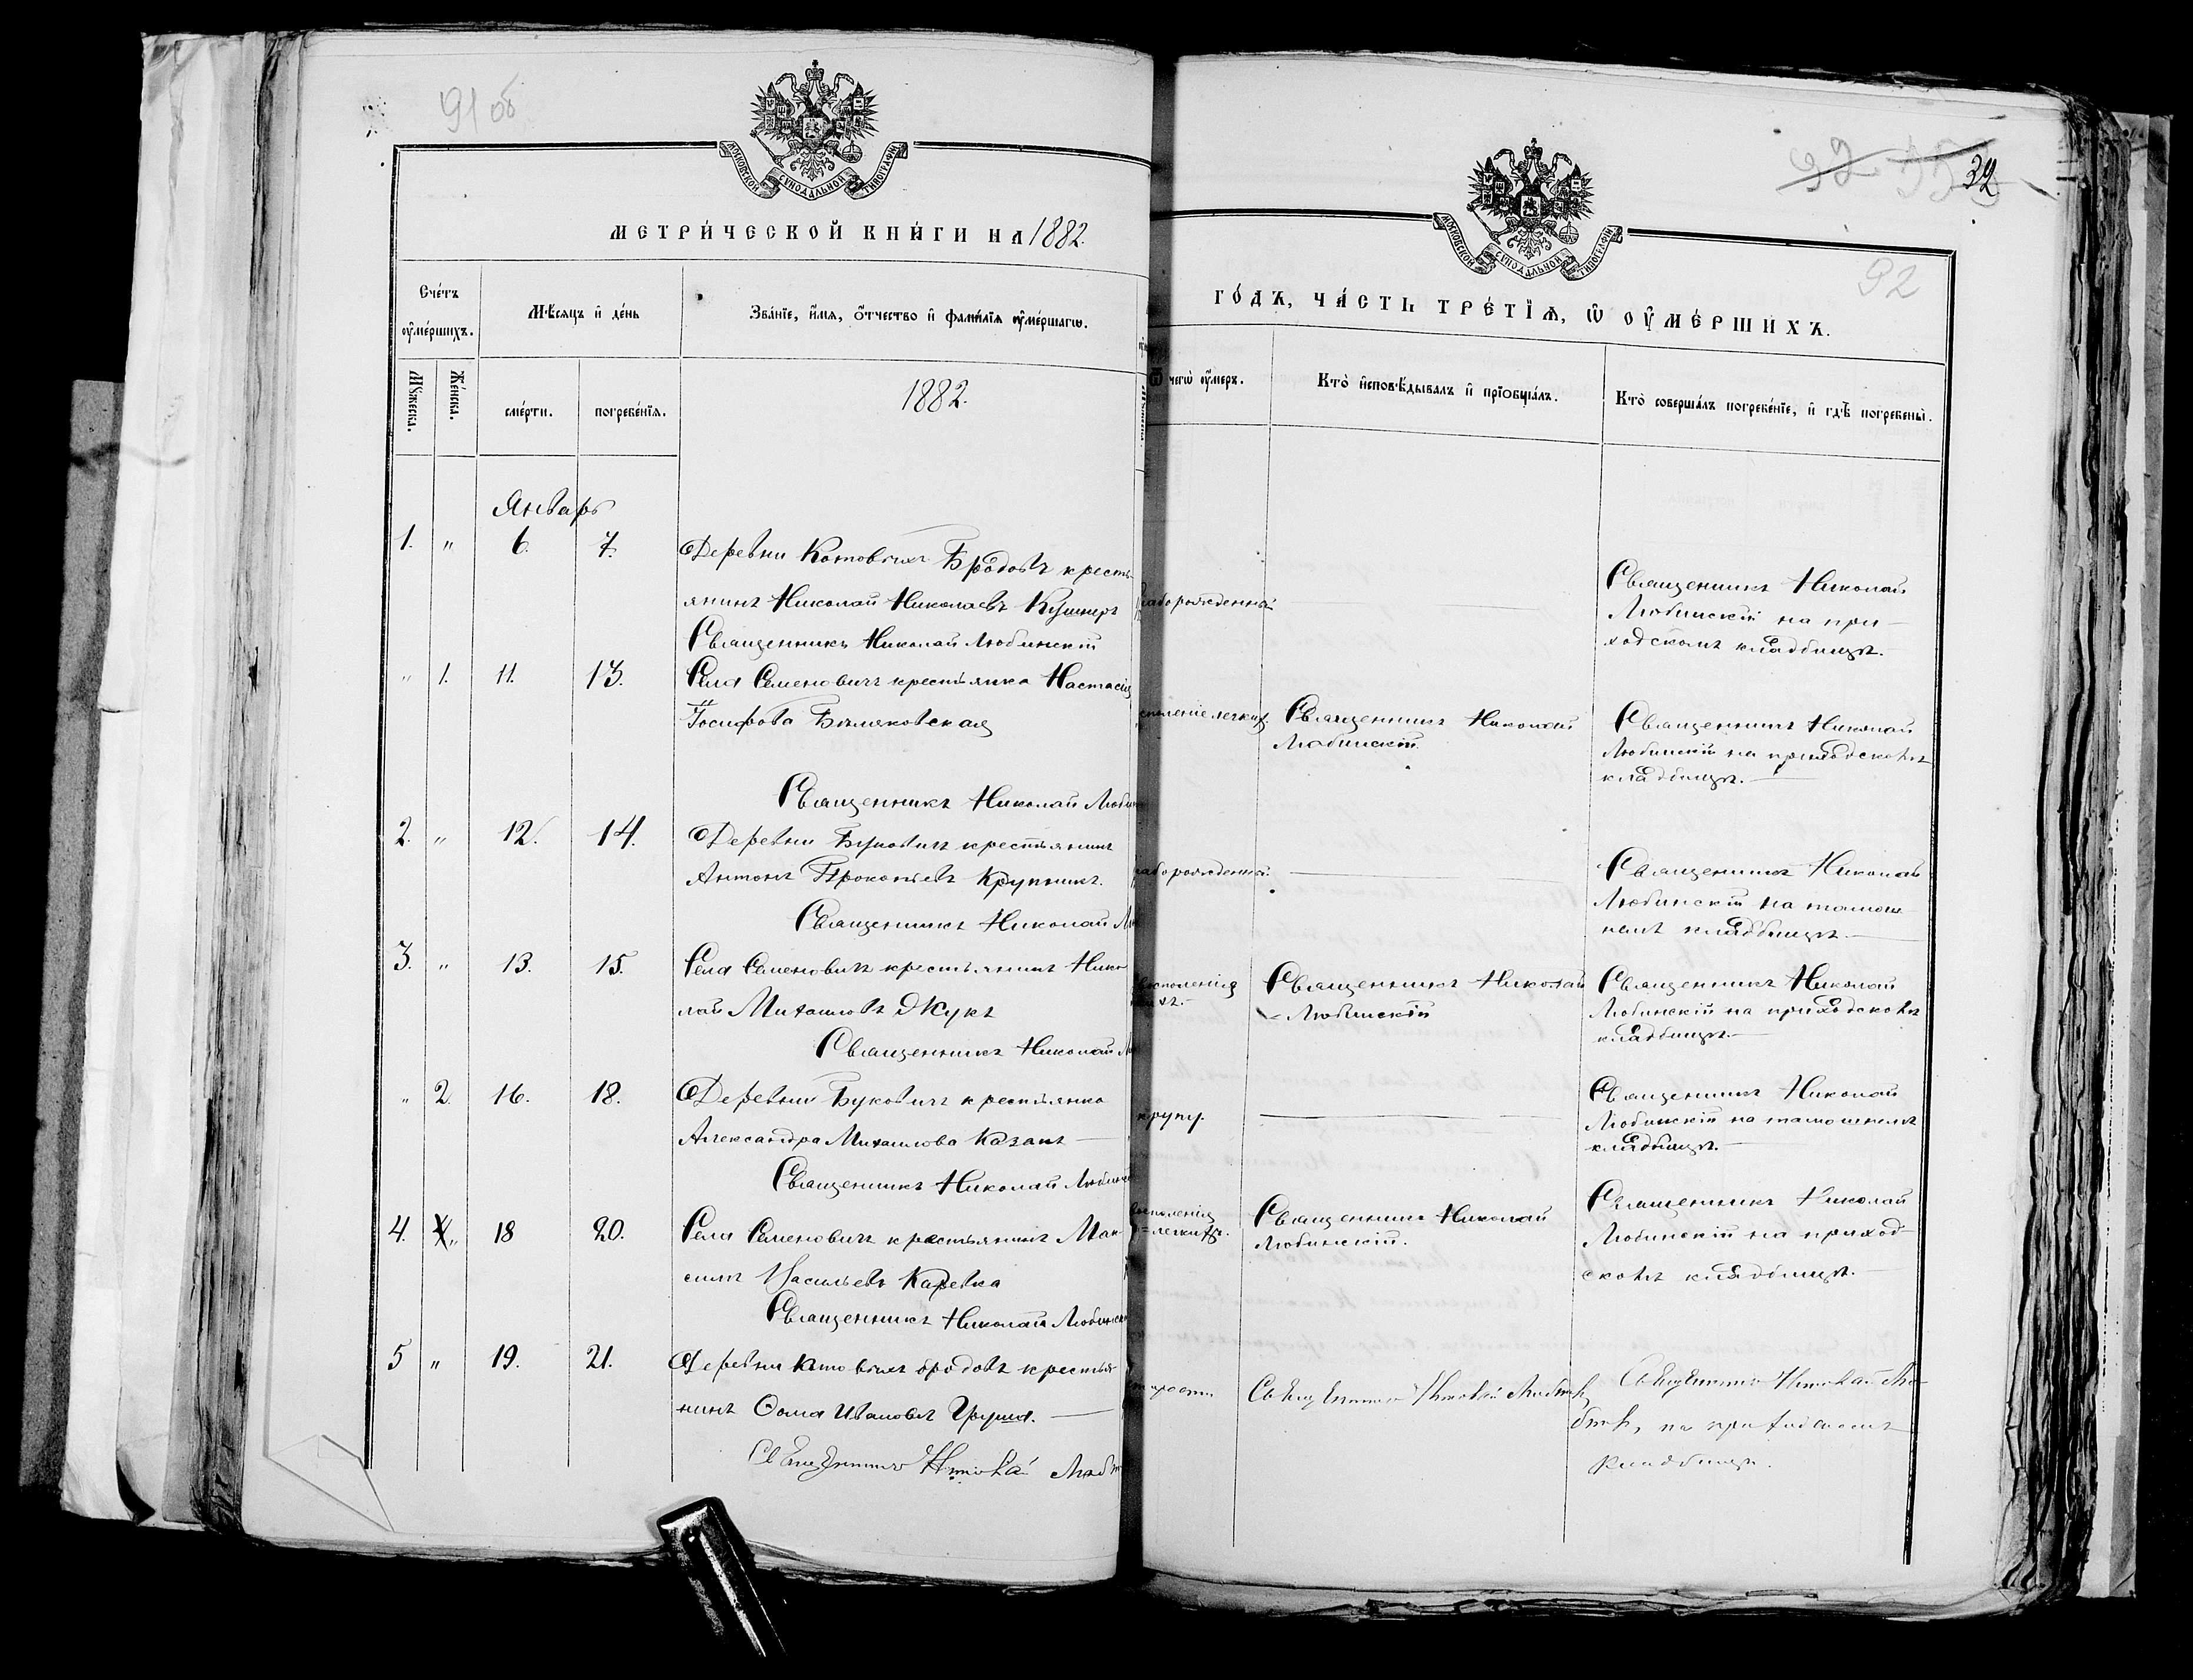 91 об
МОСКОВСКОЙ СѴНОДАЛЬНОЙ ТИПОГРАФІИ
МЕТРИ́ЧЕСКОЙ КНИ́ГИ НА 1882.
Сче́тъ ᲂу҆ме́ршихъ.
Мѣ́сяцъ и҆ де́нь
Зва́нїе, и҆́мя, ѻ҆́тчество и҆ фами́лїя ᲂу҆ме́ршагѡ.
Мꙋ́жеска.
Же́нска.
сме́рти.
погребе́нїя.
1882.
Январь
1. „ 6. 7. Деревни Котовыхъ Бродовъ кресть
янинъ Николай Николаевъ Кушнеръ
Священникъ Николай Любинскій
„ 1. 11. 13. Села Семеновичъ крестьянка Настасія
Іосифова
Священникъ Николай
2. „ 12. 14. Деревни Буковичъ крестьянинъ
Антонъ Прокопіевъ Крупникъ.
Священникъ Николай
3. „ 13. 15. Села Семеновичъ крестьянинъ Нико
лай Михаиловъ Жукъ
Священникъ Николай
„ 2. 16. 18. Деревни Буковичъ крестьянка
Александра Михаилова Казакъ
Священникъ Николай
4. „ 18 20. Села Семеновичъ крестьянинъ Мак
симъ Васильевъ Каревка
Священникъ Николай
5 „ 19. 21. Деревни бродовъ крестья
нинъ Ѳома Ивановъ Груша.
Священникъ Николай
92
32
92
МОСКОВСКОЙ СѴНОДАЛЬНОЙ ТИПОГРАФІИ
ГО́ДЪ, ЧА́СТЬ ТРЕ́ТЇѦ, Ѡ҆ ОУ҆МЕ́РШИХЪ.
чегѡ̀ ᲂу҆́меръ.
Кто̀ и҆сповѣ́дывалъ и҆ прїѡбща́лъ.
Кто̀ соверша́лъ погребе́нїе, и҆ гдѣ̀ погребены̀.
аборожденный
Священникъ Николай
Любинскій на при-
ходскомъ кладбищѣ.
споленіе легкихъ. Священникъ Николай
Любинскій
Священникъ Николай
Любинскій на приходскомъ
кладбищѣ.
аборожденный.
Священникъ Николай
Любинскій на тамош
немъ кладбищѣ.
восполенія
Священникъ Николай
Любинскій
Священникъ Николай
Любинскій на приходскомъ
кладбищѣ.
крупу.
Священникъ Николай
Любинскій на тамошнемъ
кладбищѣ.
восполенія
легкихъ.
Священникъ Николай
Любинскій.
Священникъ Николай
Любинскій на приход
скомъ кладбищѣ.
Священникъ Николай
Священникъ Николай Лю
на приходскомъ
кладбищѣ.